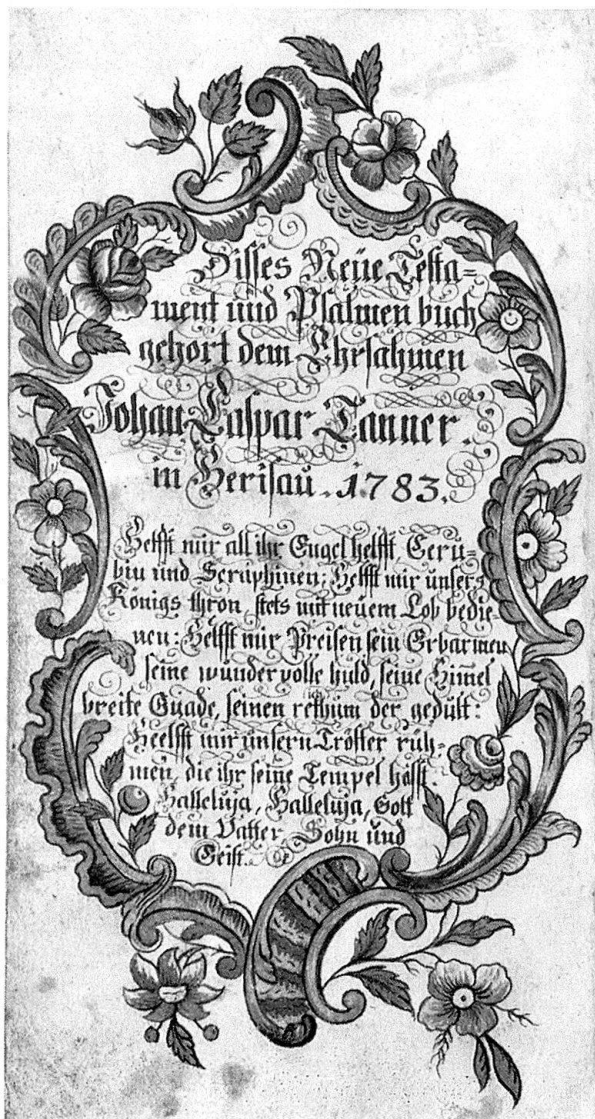 Disses Neüe Testa=
ment und Psalmen buch
gehört dem Ehrsahmen
Johan Caspar Tanner.
in Herisaü. 1783.
Helfft mir all ihr Engel helfft, Ceru=
bin und Seraphinen; Helfft mir unsers
Königs thron, stets mit neüem Lob bedie=
nen: Helfft mir Preisen sein Erbarmen
seine wunder volle huld, seine Himel
breite Gnade, seinen rethum der gedult:
Heelfft mir unsern Tröster rüh=
men, die ihr seine Tempel
Halleluja, Halleluja, Gott
dem Vatter, Sohn und
Geist.